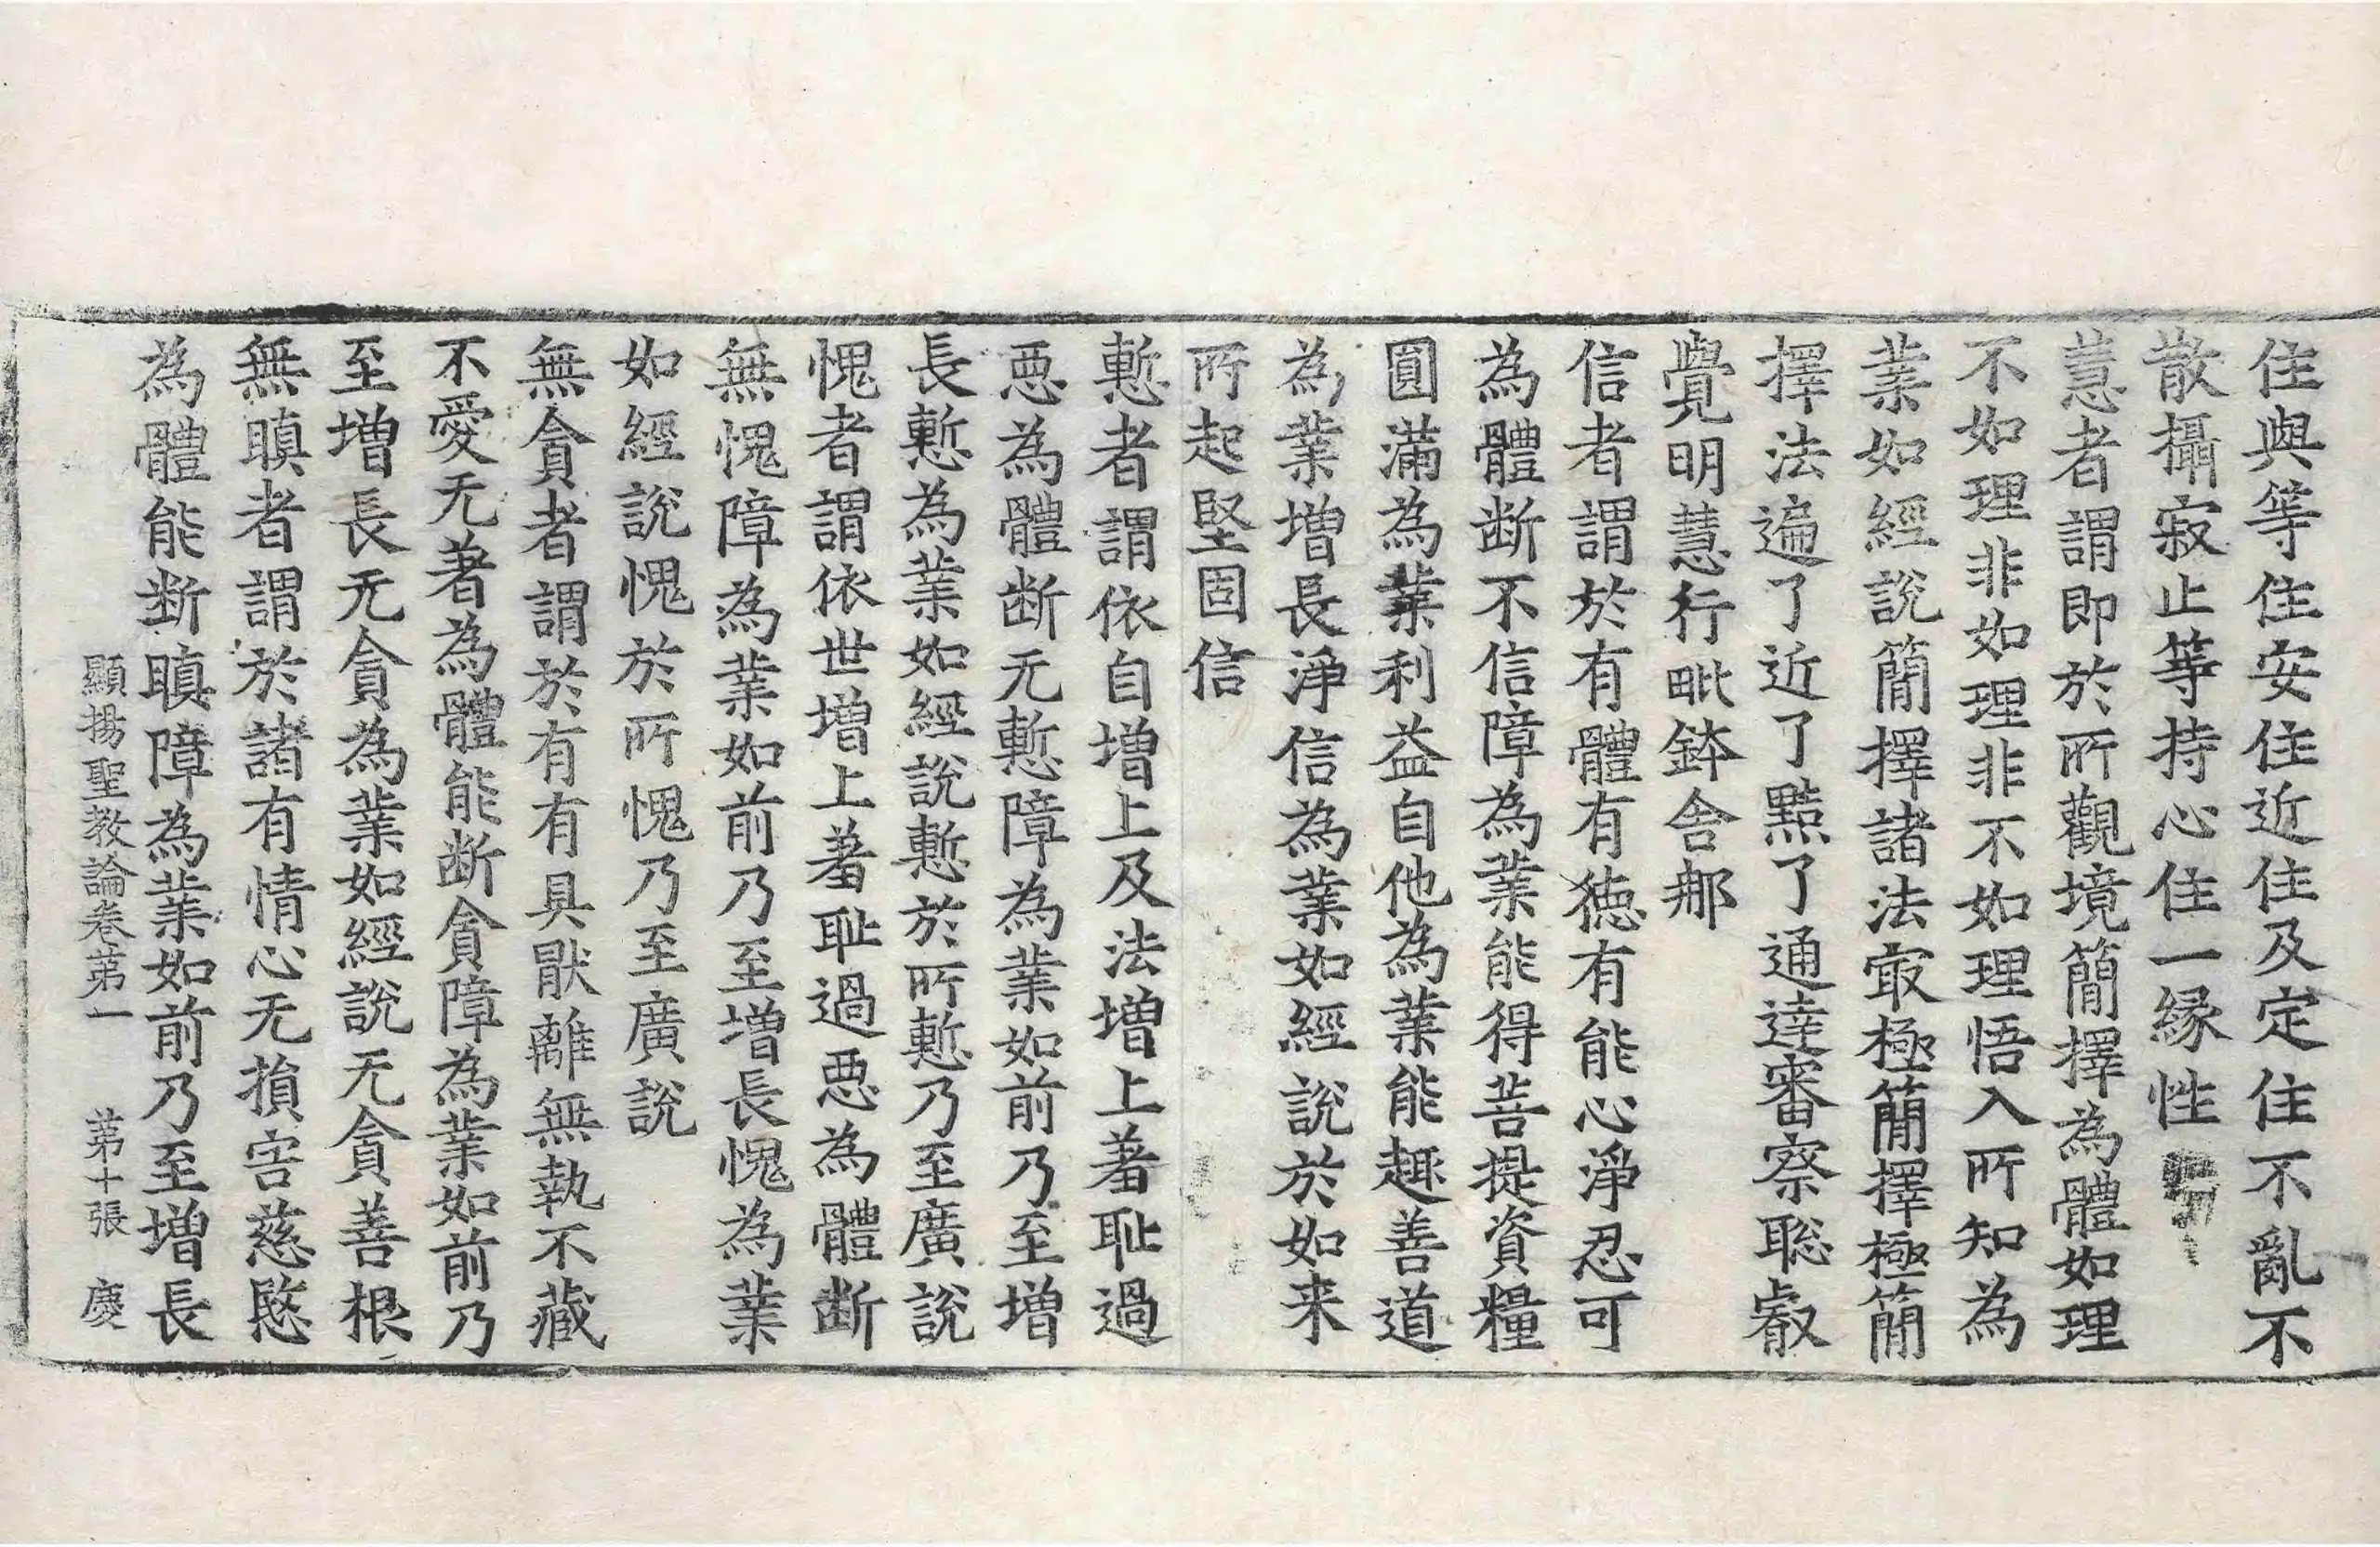 住與等住安住近住及定住不亂不
散攝寂止等持心住一緣性
慧者謂即於所觀境簡擇為體如理
不如理非如理非不如理悟入所知為
業如經說簡擇諸法㝡極簡擇極簡
擇法遍了近了黠了通達審察聡叡
覺明慧行毗鉢舍那
信者謂於有體有徳有能心淨忍可
為體断不信障為業能得菩提資糧
圓滿為業利益自他為業能趣善道
為業增長淨信為業如經說於如来
所起堅固信
慙者謂依自增上及法增上著耻過
惡為體断无慙障為業如前乃至增
長慙為業如經說慙於所慙乃至廣說
愧者謂依世增上著耻過惡為體断
無愧障為業如前乃至增長愧為業
如經說愧於所愧乃至廣說
無貪者謂於有有具猒離無執不藏
不愛无著為體能断貪障為業如前乃
至增長无貪為業如經說无貪善根
無瞋者謂於諸有情心无損害慈愍
為體能断瞋障為業如前乃至增長
顯揚聖教論卷苐一　苐十張　慶